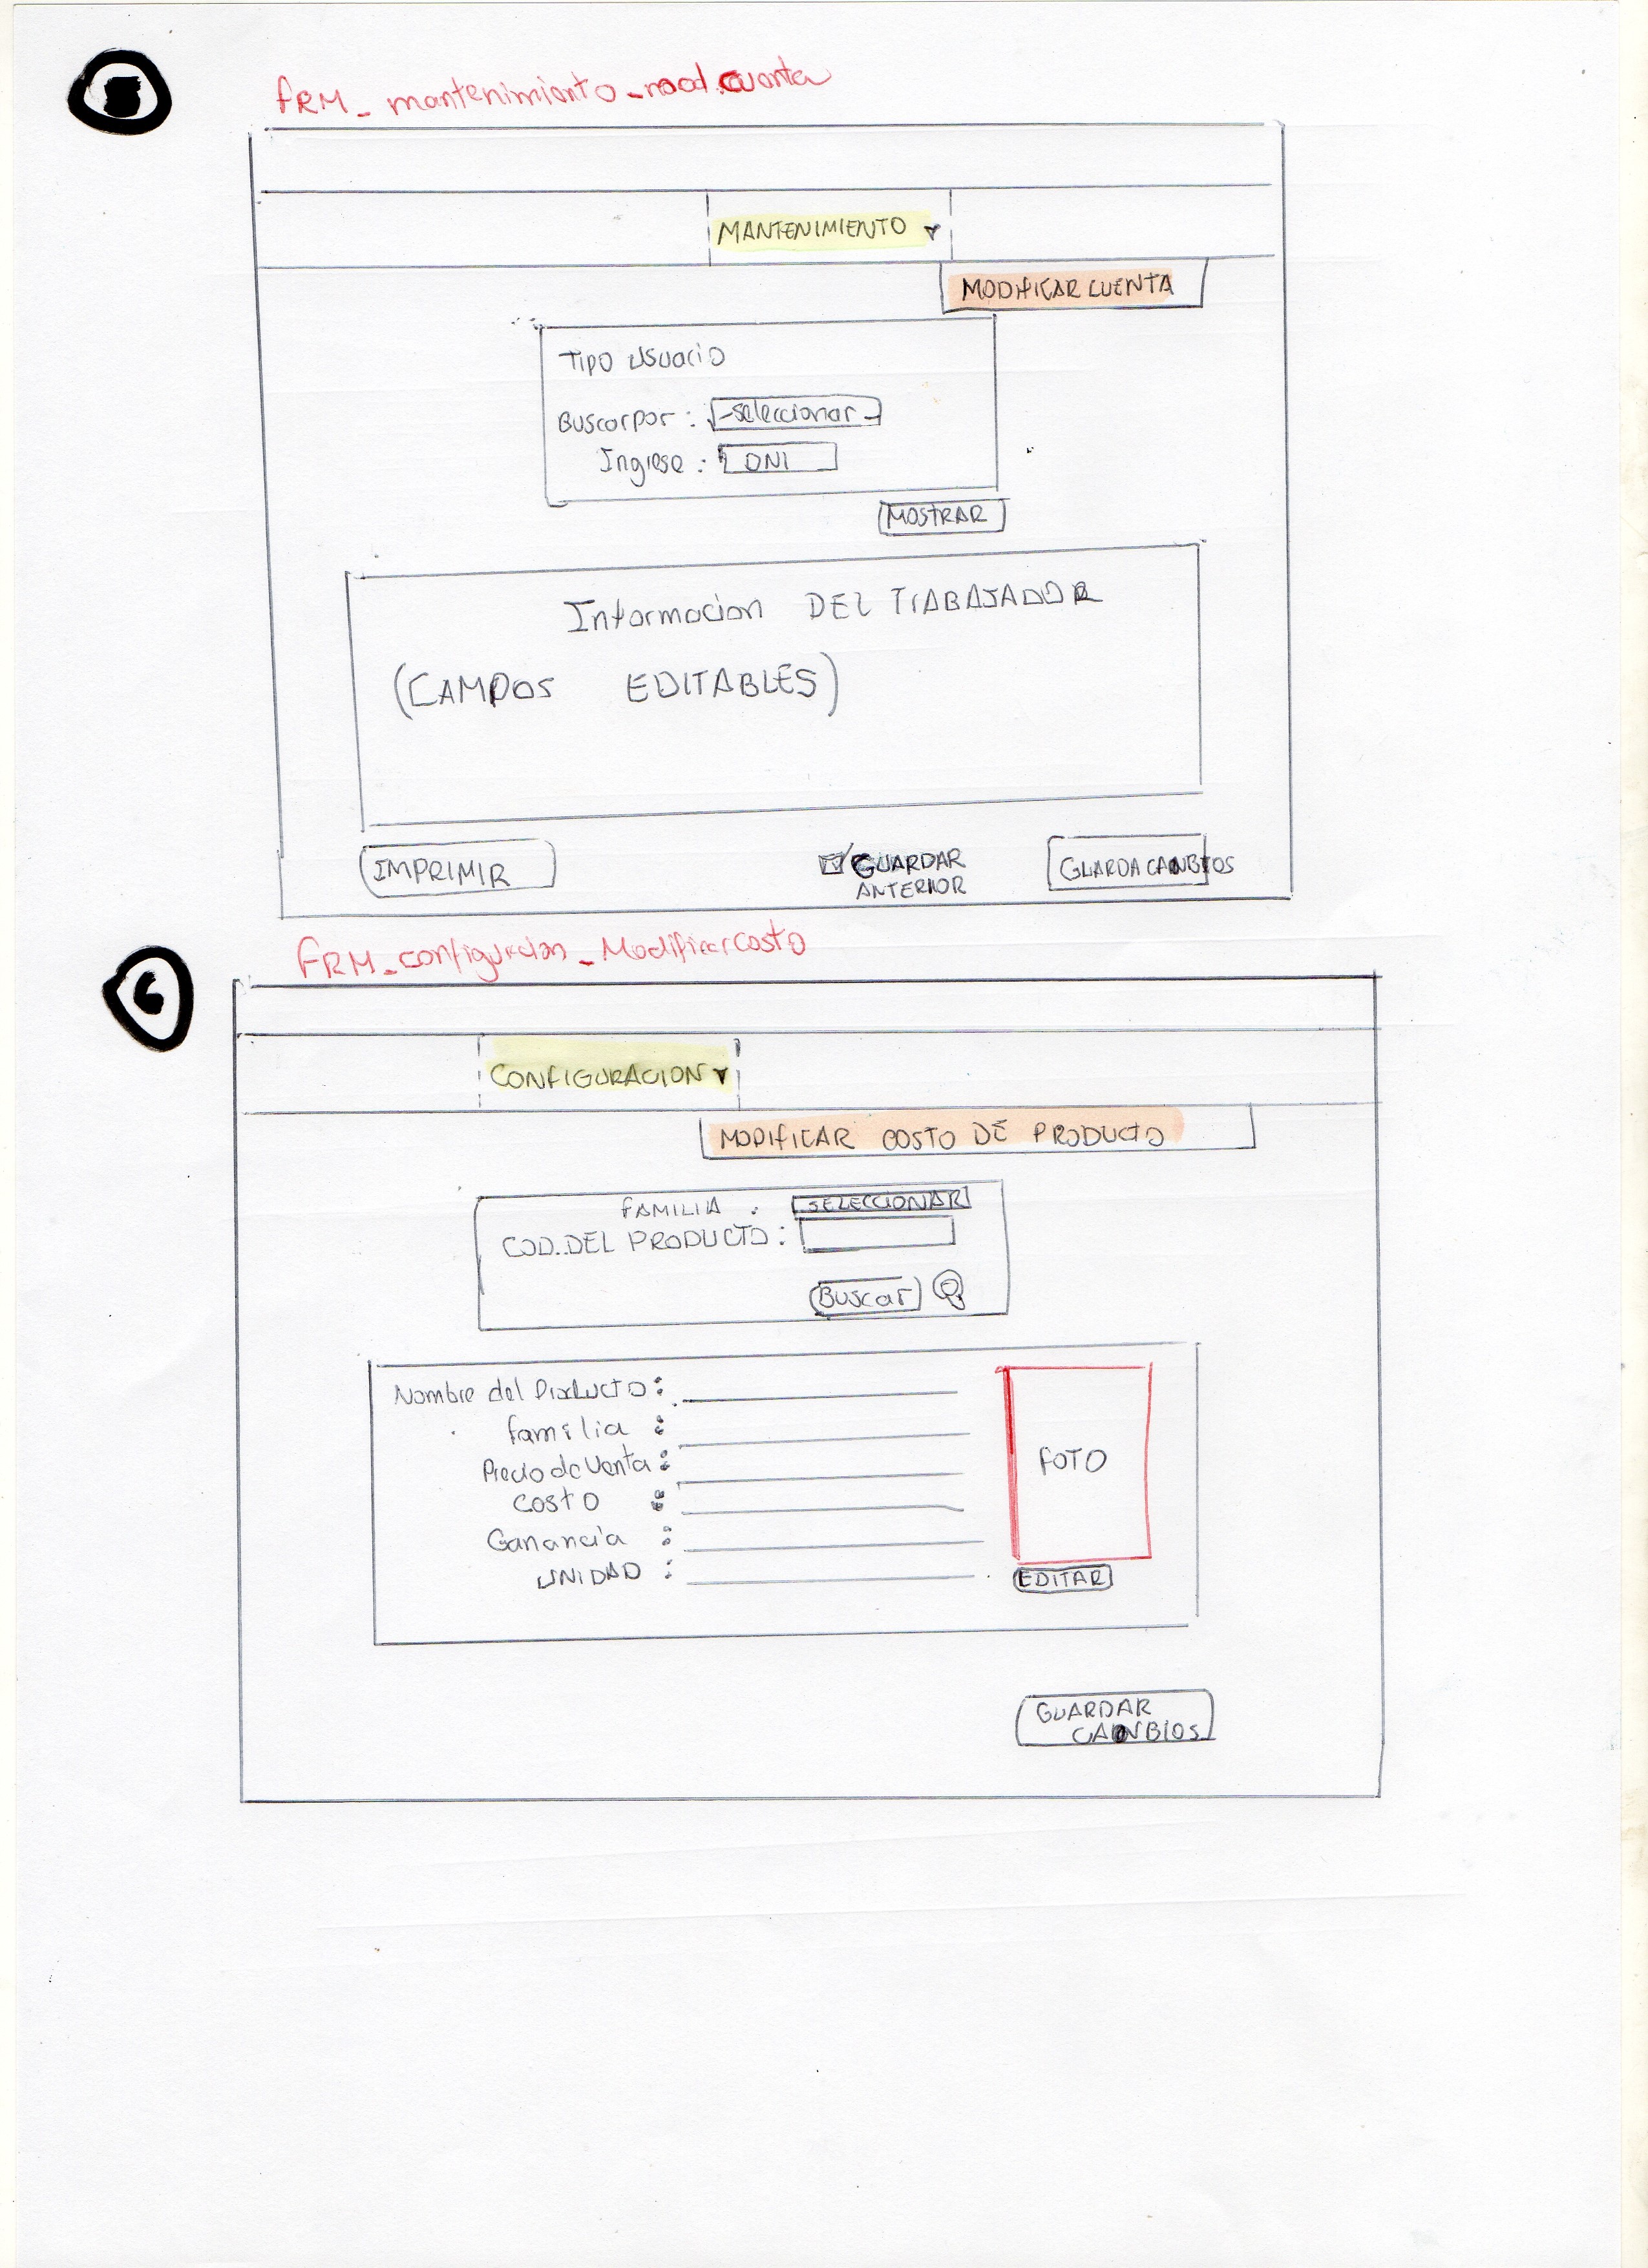 FRM_mantenimiento_mod.cuenta
MANTENIMIENTO ▾
MODIFICAR CUENTA
TIPO USUARIO
Buscar por : -seleccionar-
Ingrese : DNI
MOSTRAR
Informacion DEL TRABAJADOR
(CAMPOS EDITABLES)
IMPRIMIR
GUARDAR
ANTERIOR
GUARDA CAMBIOS
FRM_configuracion_ModificarCosto
6
CONFIGURACION ▾
MODIFICAR COSTO DE PRODUCTO
FAMILIA : SELECCIONAR
COD..DEL PRODUCTO :
Buscar
Nombre del Producto :
familia :
Precio de Venta :
COSTO :
Ganancia :
UNIDAD :
FOTO
EDITAR
GUARDAR
CAMBIOS